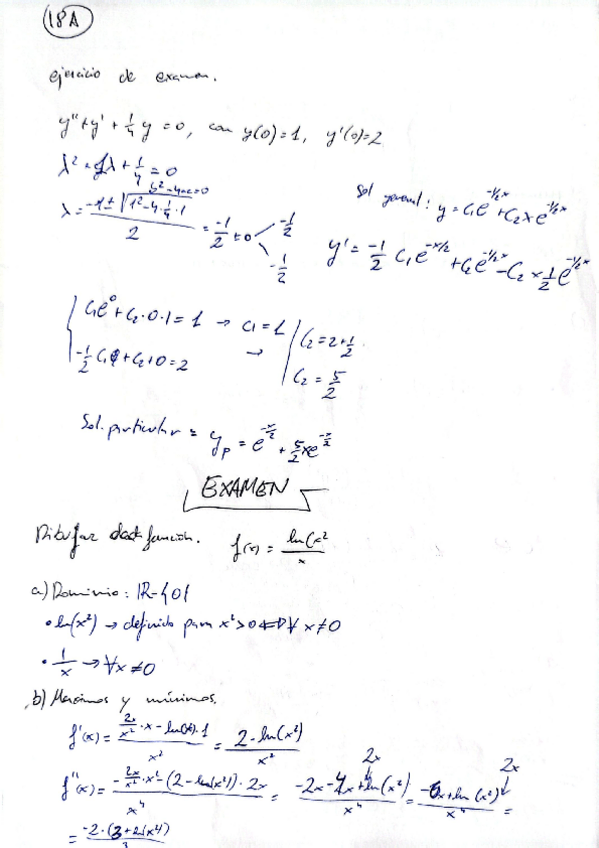 18A
ejercicio de examen.
y'' + y' + 1/4 y = 0, con y(0)=1, y'(0)=2
λ² + 1λ + 1/4 = 0
b²-4ac=0
λ = (-1 ± √(1²-4·1/4·1))/2 = -1/2 ± 0 -1/2 -1/2
Sol general: y = C₁e^(-1/2x) + C₂xe^(-1/2x)
y' = -1/2 C₁e^(-x/2) + C₂e^(-1/2x) - C₂x 1/2 e^(-1/2x)
C₁e⁰ + C₂·0·1 = 1 → C₁ = 1
-1/2 C₁ + C₂ + 0 = 2 → C₂ = 2 + 1/2
C₂ = 5/2
Sol. particular = y_p = e^(-x/2) + 5/2 xe^(-x/2)
EXAMEN
Dibujar función. f(x) = ln(x²/x
a) Dominio: R-{0}
• ln(x²) → definido para x²>0 ⇔ ∀ x≠0
• 1/x → ∀x≠0
b) Máximos y mínimos.
f'(x) = (2x/x² · x - ln(x²)·1)/x² = (2-ln(x²))/x²
f''(x) = (-2x/x² · x² - (2-ln(x²))·2x)/x⁴ = (-2x-4x+ln(x²) 2x)/x⁴ = (-6x+ln(x²) 2x)/x⁴ =